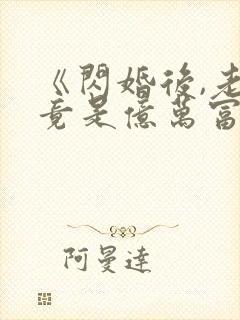 《閃婚後,走
竟是億萬富
阿曼達